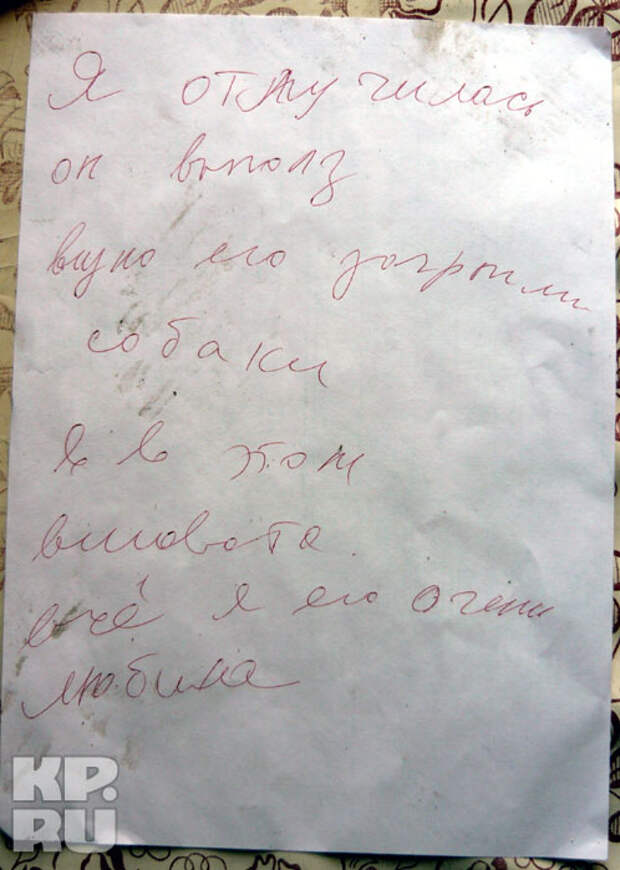 Я отлучилась
он выполз
видно его загрызли
собаки
Я в этом
виновата.
ещё я его очень
любила
KP.
RU